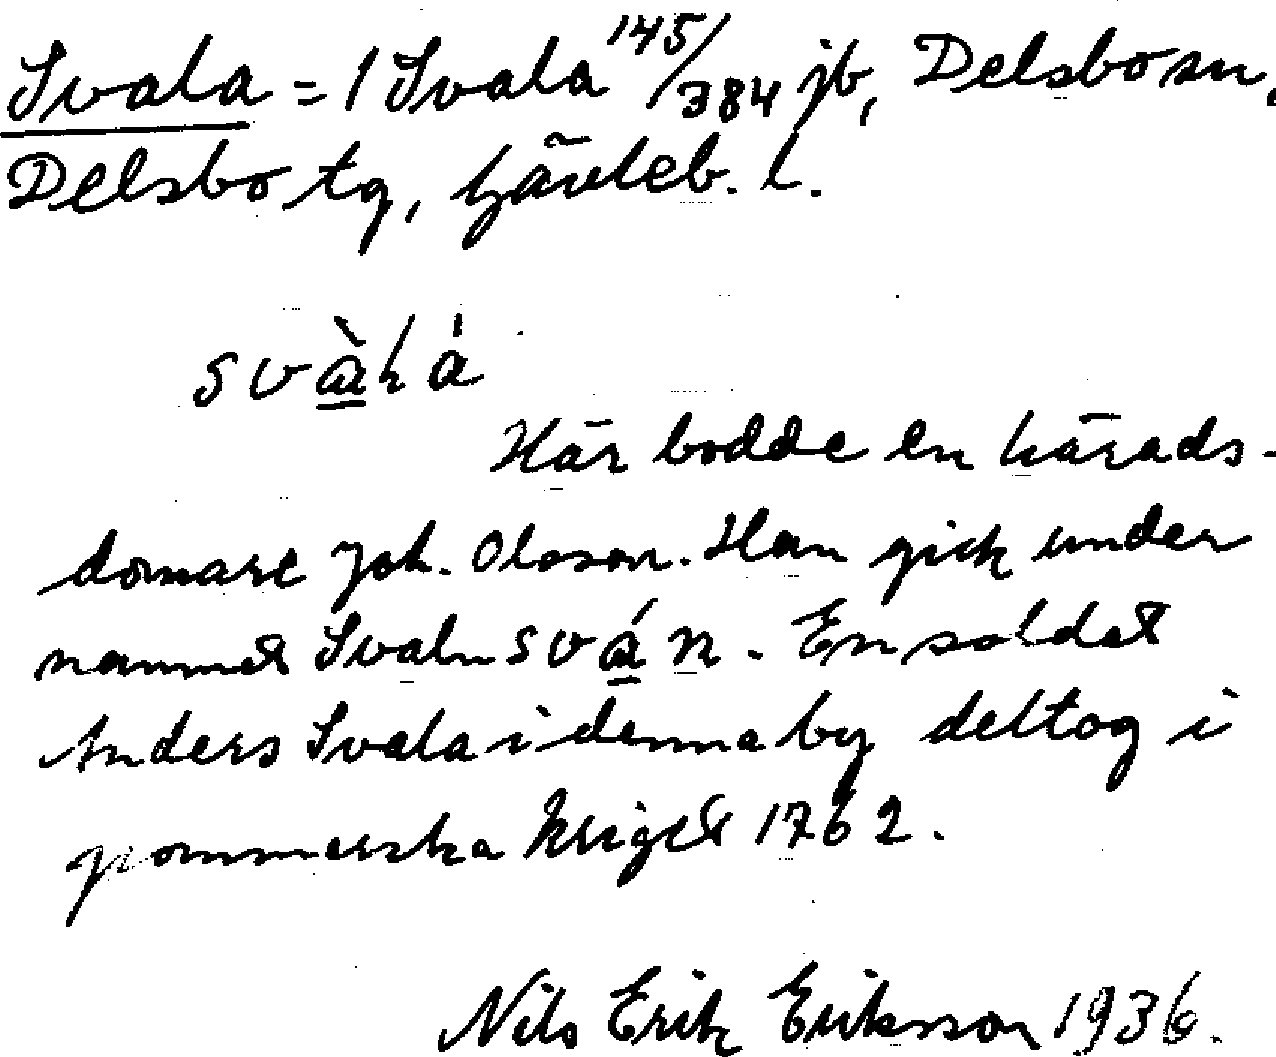 Svala = 1 Svala 145/384 jb, Delsbo sn,
Delsbo tg, Gävleb. l.
svàlá
Här bodde en härads-
domare Joh. Olsson. Han gick under
namnet Svaln sván. En soldat
Anders Svala i denna by deltog i
pommerska kriget 1762.
Nils Erik Eriksson 1936.